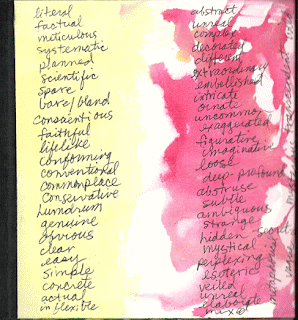 literal
factual
meticulous
systematic
planned
scientific
spare
bare/bland
consientious
faithful
lifelike
conforming
conventional
commonplace
conservative
humdrum
genuine
obvious
clear
easy
simple
concrete
actual
inflexible
abstract
unreal
complex
decorated
different
extraordinary
embellished
intricate
ornate
uncommon
exaggerated
figurative
imaginative
loose
deep-profound
abstruse
subtle
ambiguous
strange
hidden-secret
mystical
perplexing
esoteric
veiled
unreal
elaborate
mixed